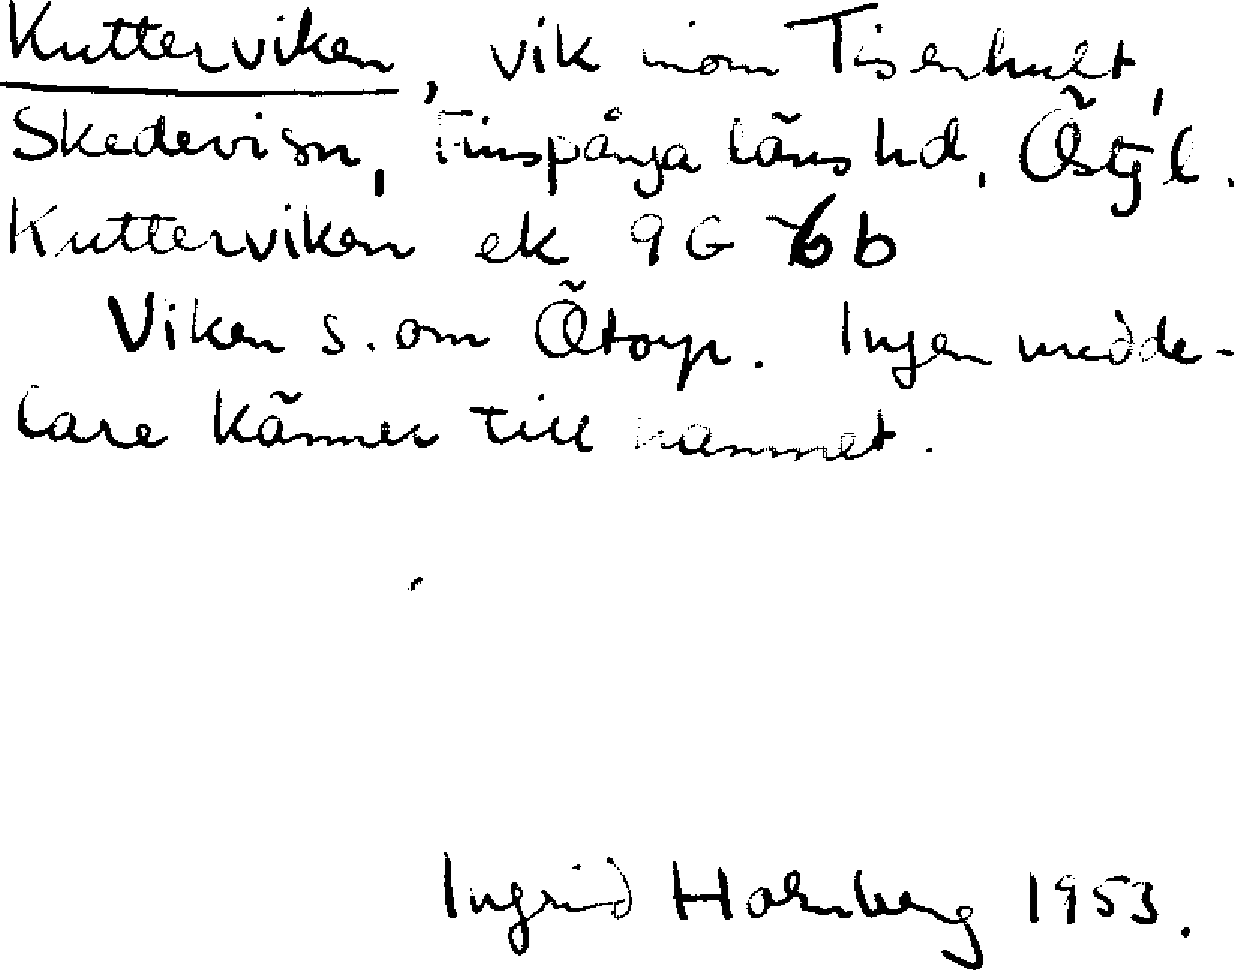 Kutterviken, vik inom Tisenhult,
Skedevi sn, Finspånga läns hd, Östg l.
Kutterviken ek 9G 6b
Viken s. om Ötorp. Ingen medde-
lare känner till namnet.
Ingrid Holmberg 1953.